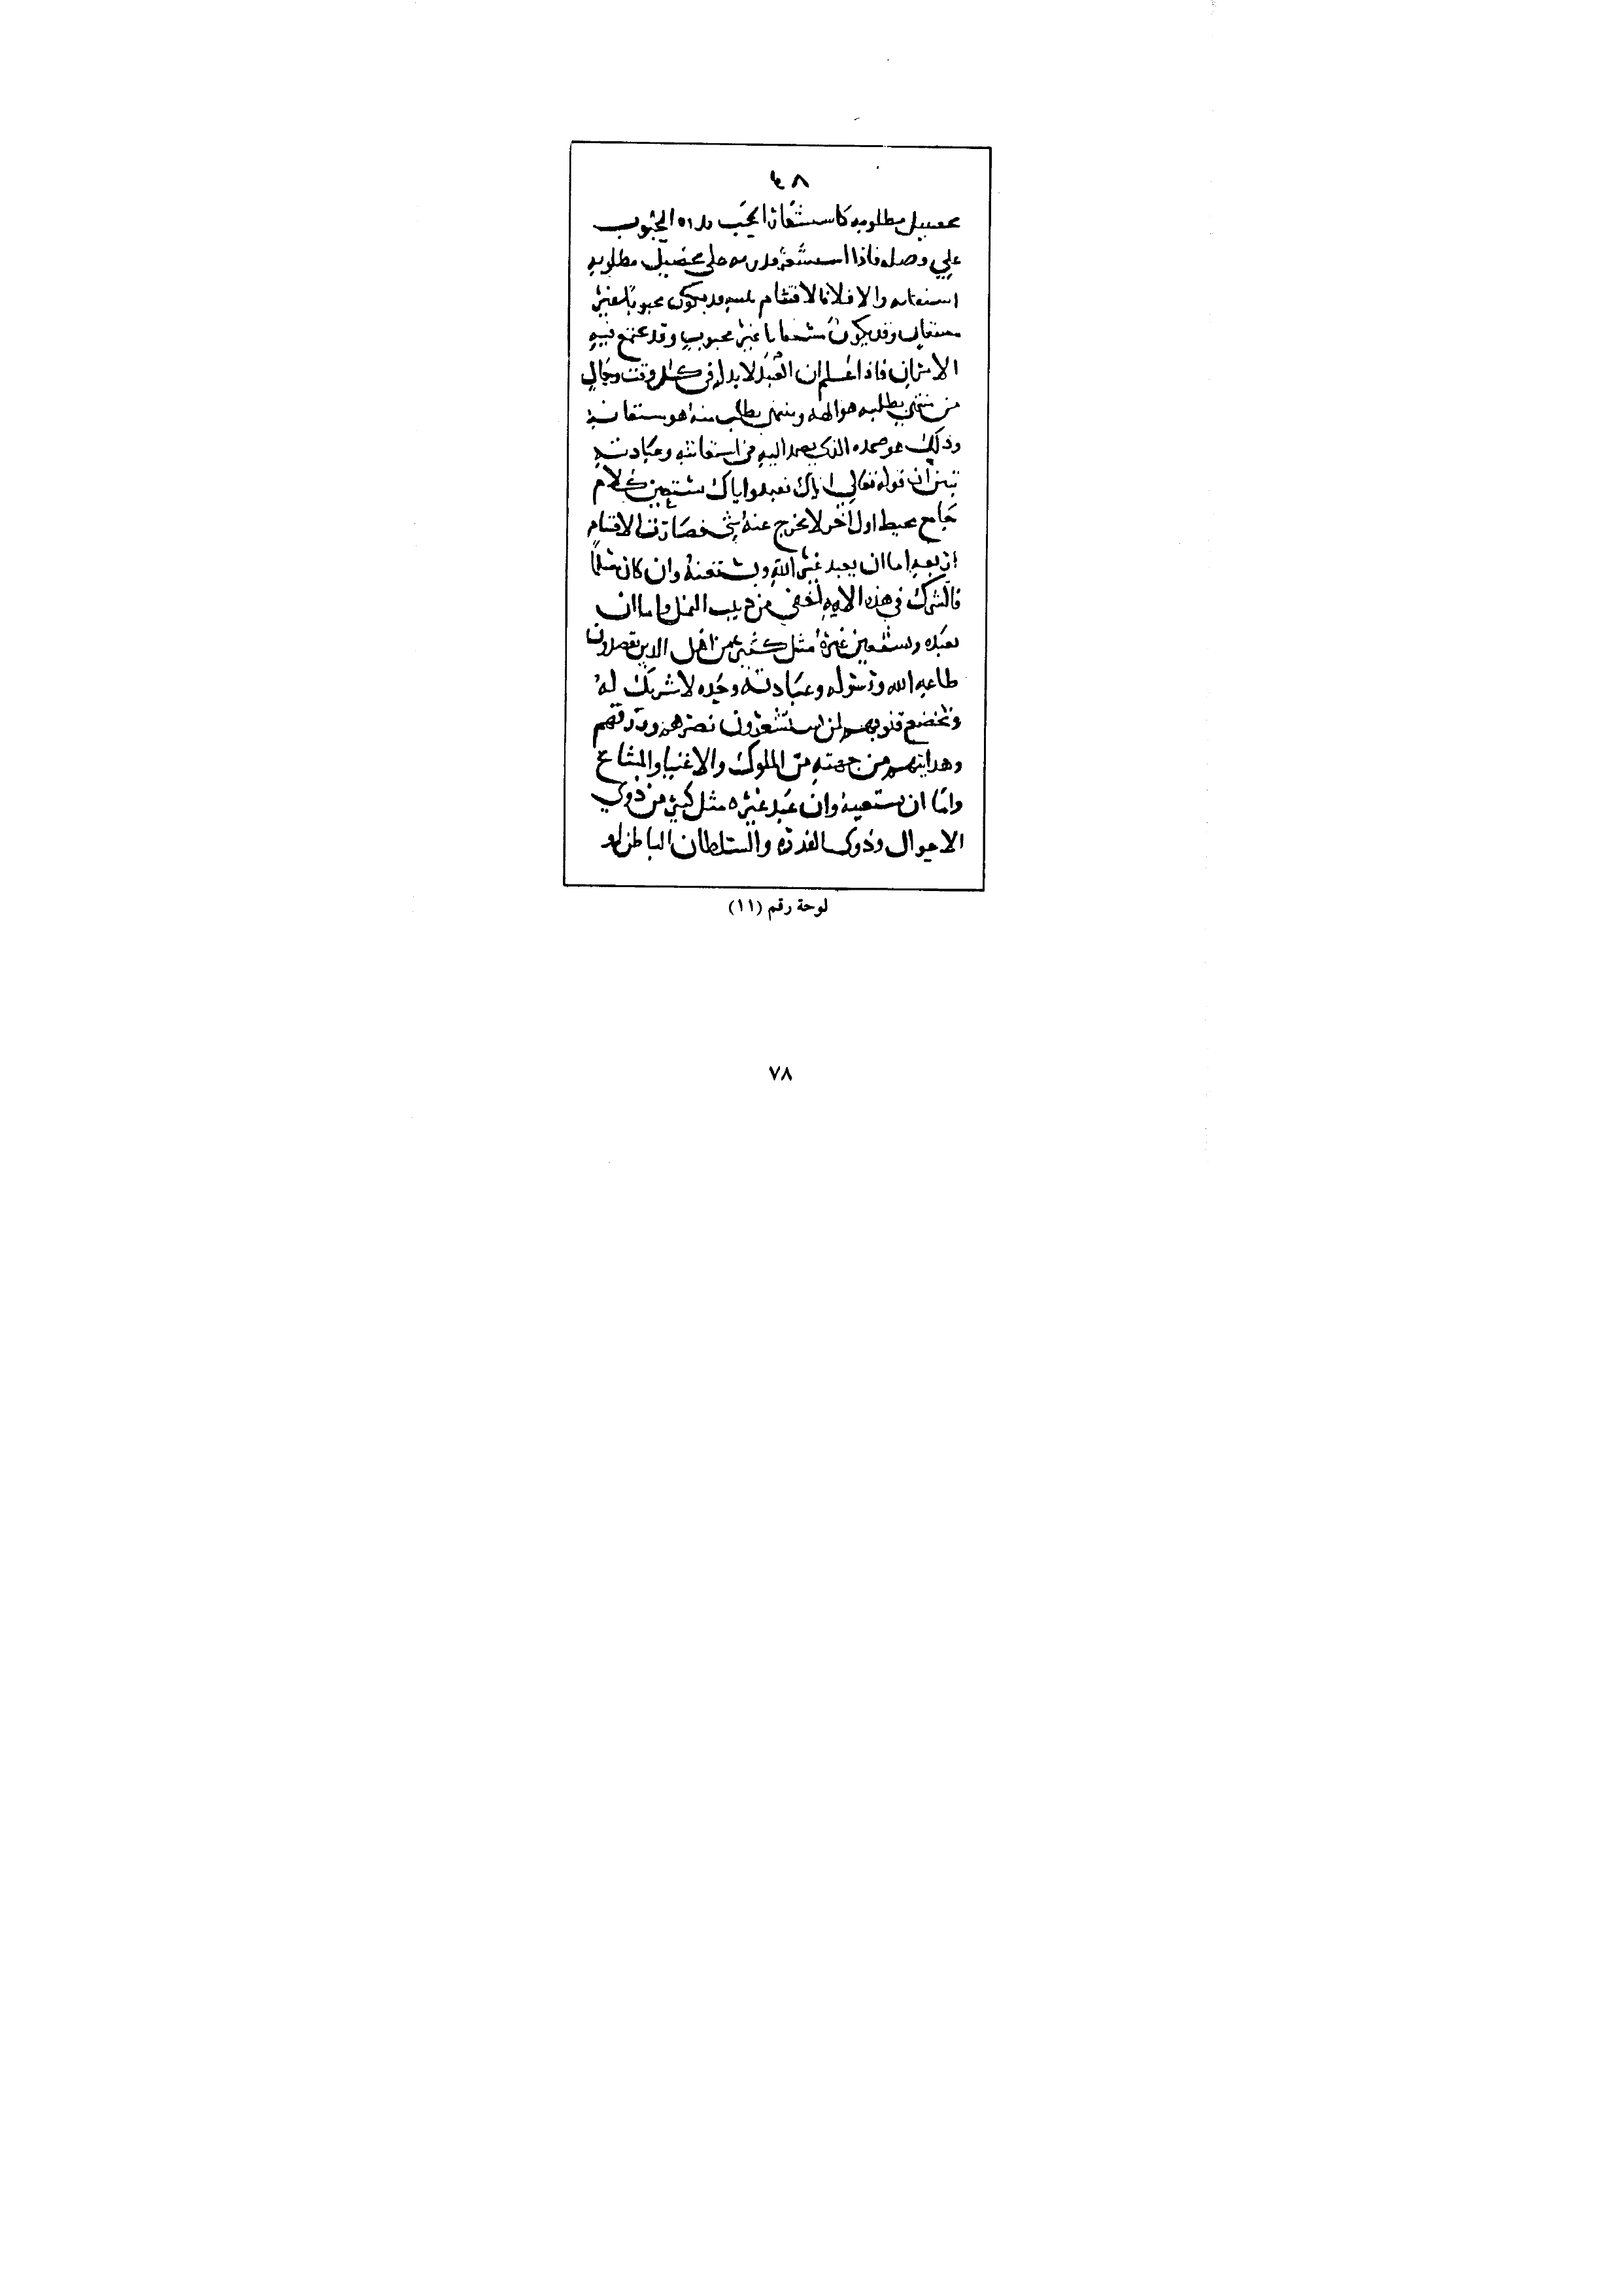 ٤٨
تحصيل مطلوبه كاستشعار المحب قدره المحبوب
علي وصله فاذا استشعر قدرته على تحصيل مطلوبه
استعانه والا فلا فالاقسام ثلاثه فقد يكون محبوبا غير
مستعان وقد يكون مستعانا غير محبوب وقد يجتمع فيه
الامران فاذا علم ان العبد لا بد له في كل وقت وحال
من منتهي يطلبه هو الهه ومنتهي يطلب منه هو مستعانه
وذلك هو صمده الذي يصمد اليه في استعانته وعبادته
تبين ان قوله تعالي اياك نعبد واياك نستعين كلام
جامع محيط اولا واخرا لا يخرج عنه شي فصارت الاقسام
اربعه اما ان يعبد غير الله ويستعينه وان كان مسلما
فالشرك في هذه الامه اخفي من دبيب النمل واما ان
يعبده ويستعين غيره مثل كثير من اهل الدين يقصدون
طاعه الله ورسوله وعبادته وحده لا شريك له
وتخضع قلوبهم لمن يستشعرون نصرهم ورزقهم
وهدايتهم من جهته من الملوك والاغنيا والمشايخ
واما ان يستعينه وان عبد غيره مثل كثير من ذوي
الاحوال وذوي القدرة والسلطان الباطن او
لوحة رقم (١١)
٧٨